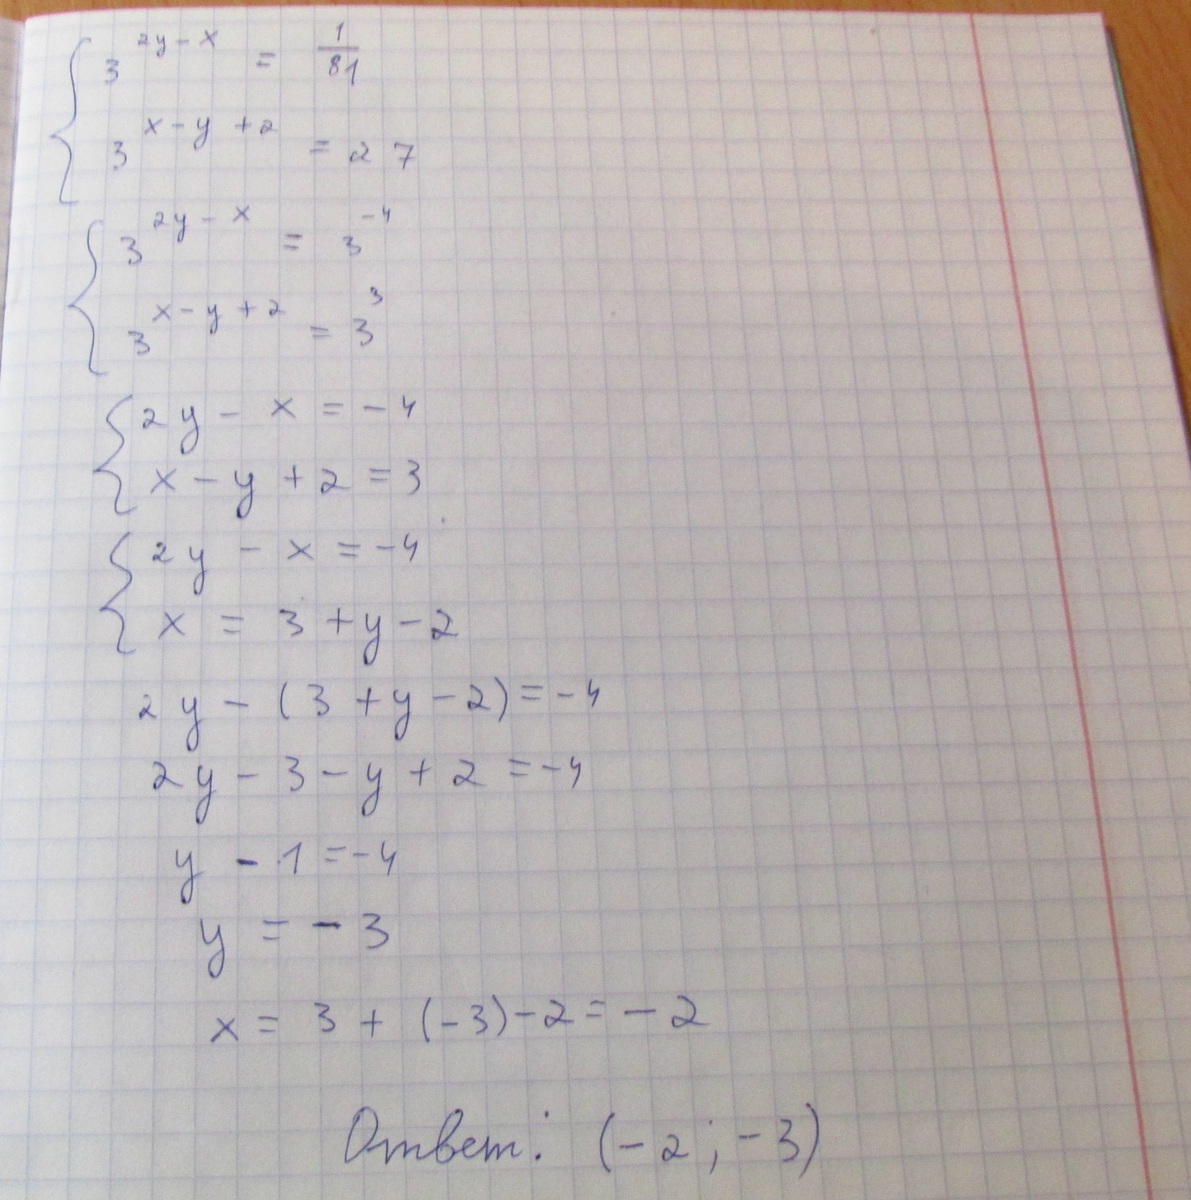 { 3^(2y-x) = 1/81
3^(x-y+2) = 27
{ 3^(2y-x) = 3^(-4)
3^(x-y+2) = 3^3
{ 2y - x = -4
x - y + 2 = 3
{ 2y - x = -4
x = 3 + y - 2
2y - (3 + y - 2) = -4
2y - 3 - y + 2 = -4
y - 1 = -4
y = -3
x = 3 + (-3) - 2 = -2
Ответ: (-2; -3)